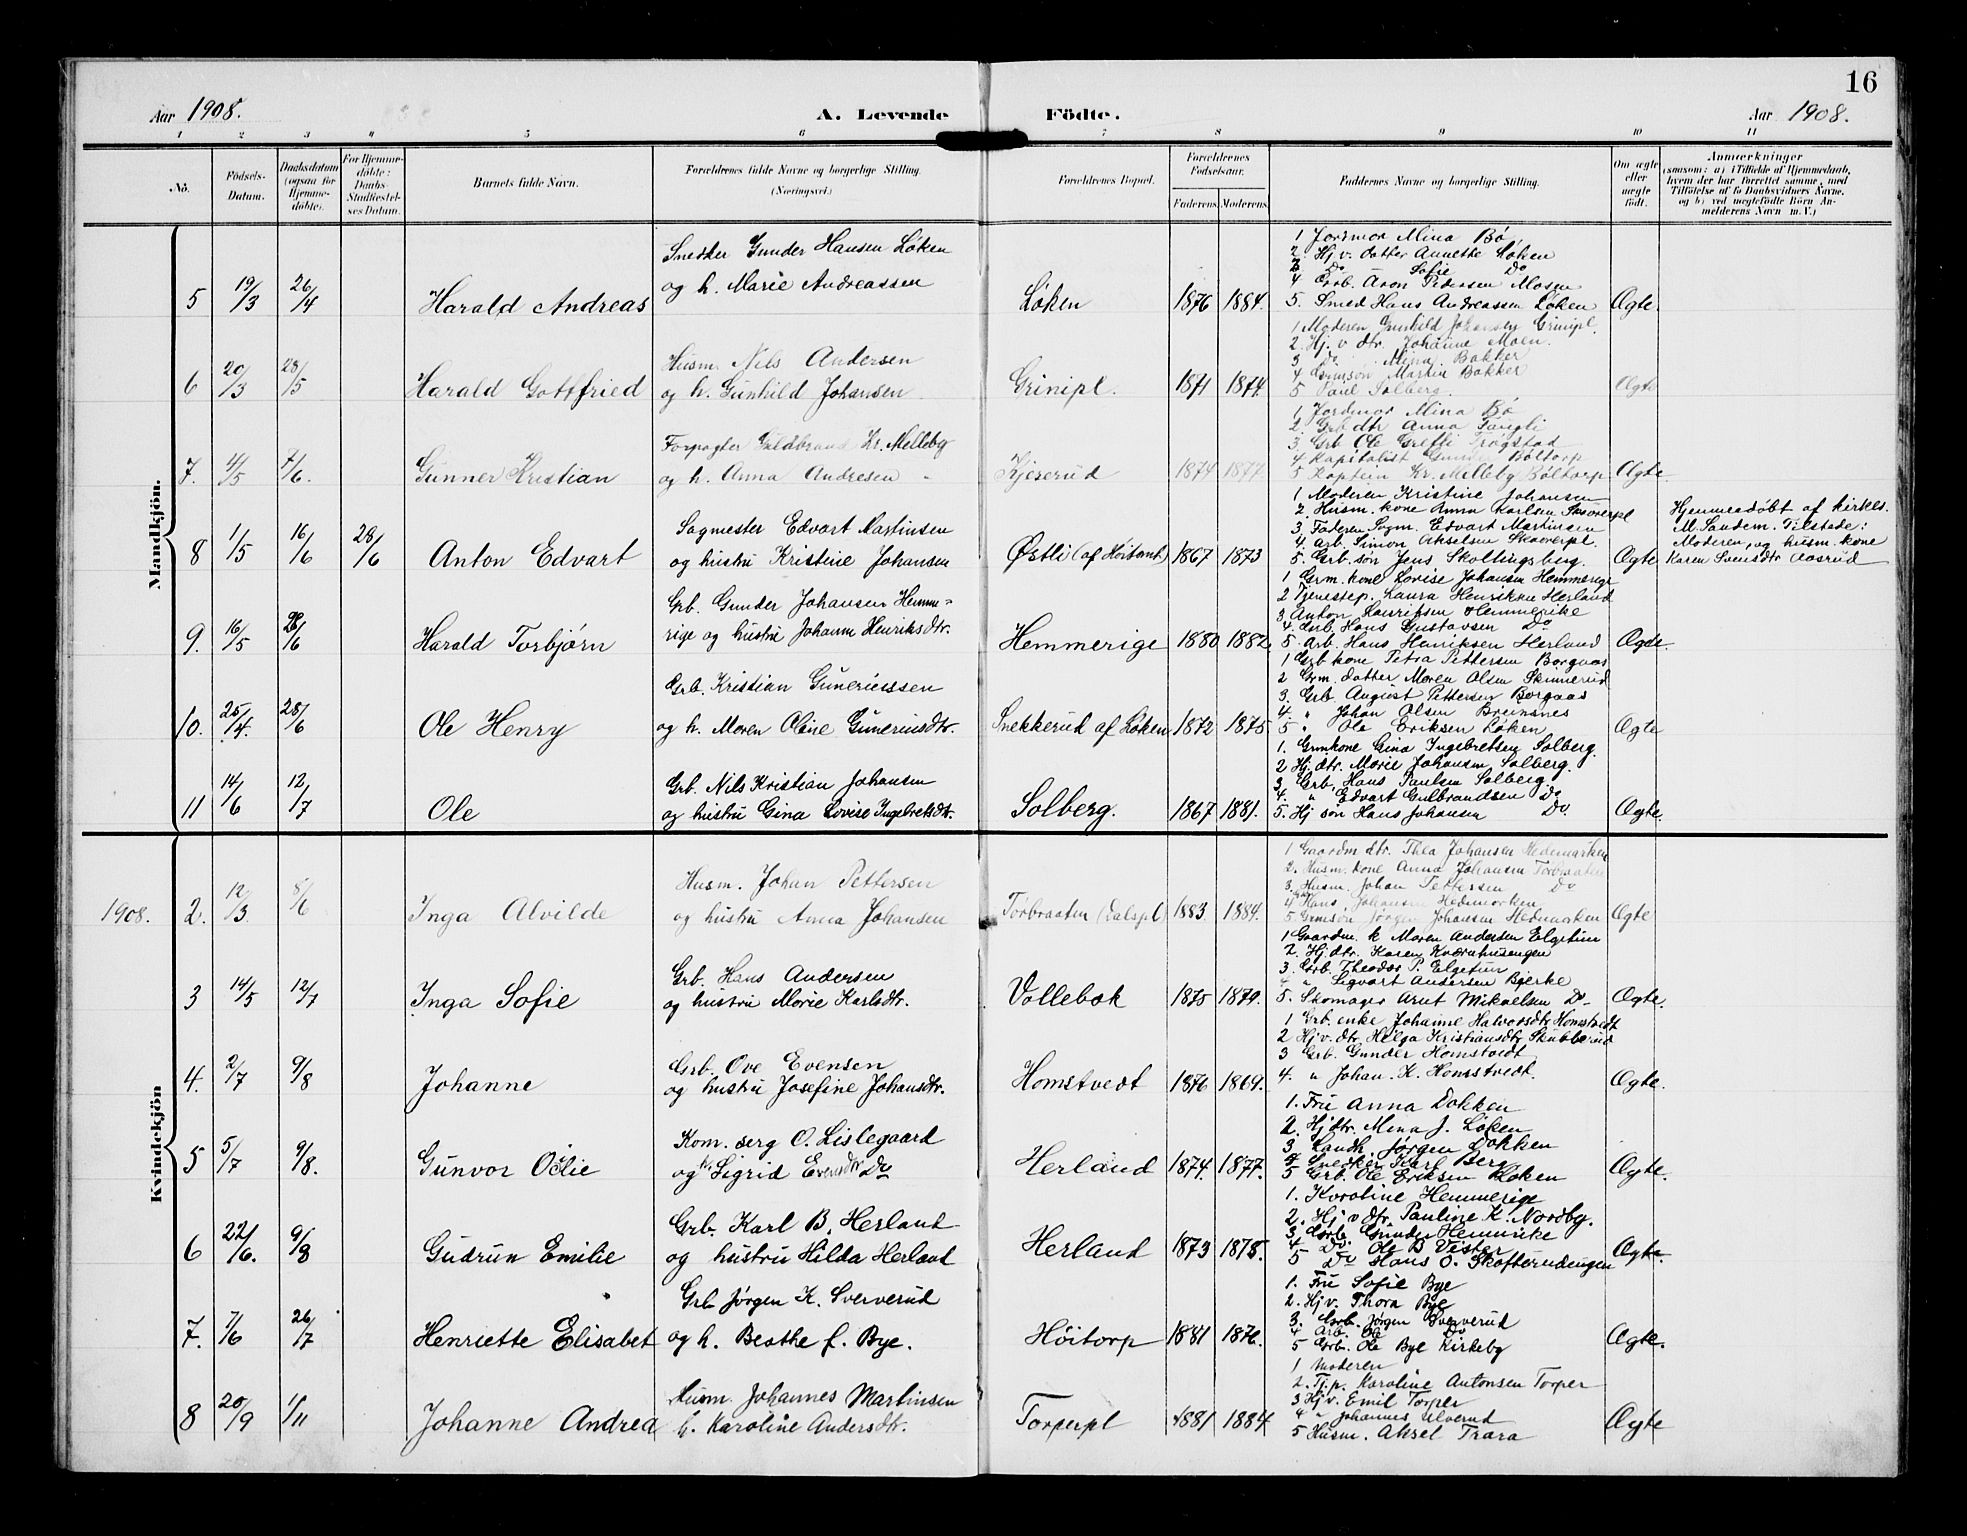 16
Aar 1908.
A. Levende Födte.
Aar 1908.
1 2 3 4 5 6 7 8 9 10 11
Nö.
Födsels-Datum.
Daabsdatum (ogsaa for Hjemme-döbte).
For Hjemme-döbte: Daabs-Stadfæstel-ses Datum.
Barnets fulde Navn.
Forældrenes fulde Navne og borgerlige Stilling. (Næringsvei.)
Forældrenes Bopæl.
Forældrenes Födselsaar.
Faderens. Moderens.
Faddernes Navne og borgerlige Stilling.
Om ægte eller uægte födt.
Anmærkninger (saasom: a) i Tilfælde af Hjemmedaab, hvem der har forrettet samme, med Tilföielse af to Daabsvidners Navne, og b) ved uægtefödte Börn An-melderens Navn m. V.)
Mandkjön.
5 19/3 26/4 Harald Andreas
Snedker Gunder Hansen Løken
og h. Marie Andreassen
Løken 1876 1884.
1 Jordmor Mina Bø
2. Hj v. datter Annette Løken
3 Do Sofie Do
4 Grb. Aron Pedersen Mosen
5. Smed Hans Andreassen Løken
Ægte.
6 20/3 28/5 Harald Gottfried
Husm. Nils Andersen
og h. Gunhild Johansen
Grinipl. 1871 1874.
1 Moderen Gunhild Johansen Grinipl.
2. Hj. v dtr. Johanne Moen.
3 Do Mina Bakker
4 Grmsøn Martin Bakker
5 Paul Solberg
Ægte
7. 4/5 7/6. Gunner Kristian
Forpagter Guldbrand Kr. Melleby
og h. Anna Andresen "
Kjeserud 1874 1877.
1 Jordmor Mina Bø
2 Grb dtr Anna
3. Grb Ole Grefsli Trøgstad
4 Kapitalist Gunder Bøltorp
5 Kaptein Kr. Melleby Bøltorp
Ægte.
8 1/5 16/6 28/6 Anton Edvart
Sagmester Edvart Martinsen
og hustru Kristine Johansen
Østli (af Høitomt) 1867 1873
1 Moderen Kristine Johansen
2. Husm. kone Anna Karlsen
3. Faderen Sagm. Edvart Martinsen
4. Arb. Simon Akselsen Skoverpl.
5. Grb. søn Jens Skollingsberg.
Ægte
Hjemmedøbt af kirkes.
M. Sandem. Tilstede:
Moderen, og husm. kone
Karen Svensdtr Aasrud
9. 16/5 28/6 Harald Torbjørn
Grb. Gunder Johansen Hemme-
rige og hustru Johanne Henriksdtr.
Hemmerige 1880 1882
1 Grm. kone Lovise Johansen Hemmerige
2 Tjenestep. Laura Henrikke Herland
3 Anton Henriksen Hemmerike
4. Grb. Hans Gustavsen Do
5. Arb. Hans Henriksen Herland
Ægte.
10. 25/4. 28/6 Ole Henry
Grb. Kristian Guneriussen
og h. Maren Oline Guneriusdtr.
Snekkerud af Løken 1872 1875.
1 Grb kone Petra Pettersen Borgaas
2 Grm. datter Maren Olsen Skinnerud
3. Grb August Pettersen Borgaas
4. " Johan Olsen Brunsnes
5 " Ole Eriksen Løken
Ægte
11 14/6 12/7 Ole
Grb. Nils Kristian Johansen
og hustru Gina Lovise Ingebretsdtr.
Solberg. 1867 1881.
1. Grmkone Gina Ingebretsen Solberg.
2 Hj. dtr. Marie Johansen Solberg.
3. Grb. Hans Paulsen Solberg
4. " Edvart Gulbrandsen Do
5. Hj søn Hans Johansen Do.
Ægte.
1908.
Kvindekjön
2. 12/3. 8/6 Inga Alvilde
Husm. Johan Pettersen
og hustru Anna Johansen
Torbraaten (Dalspl) 1883. 1884.
1 Gaardm dtr. Thea Johansen Hedemarken
2. Husm. kone Anna Johansen Torbraaten
3. Husm. Johan Pettersen Do
4 Hans Johansen Hedemarken
5 Grmsøn Jørgen Johansen Hedemarken
Ægte
3 14/5 12/7 Inga Sofie
Grb. Hans Andersen
og hustru Marie Karlsdtr.
Vollebæk 1875 1879.
1 Gaardm. k Maren Andersen Elgetun
2. Hj. dtr. Karen Kværnhusengen
3. Grb. Theodor P. Elgetun
4 " Sigvart Andersen Bjerke
5. Skomager Arnt Mikaelsen Do
Ægte.
4. 2/7 9/8 Johanne
Grb. Ove Evensen
og hustru Josefine Johansdtr.
Homstvedt 1876 1869.
1 Grb. enke Johanne Halvorsdtr. Homstvedt
2 Hj. v. dtr. Helga Kristiansdtr Skubberud
3 Grb. Gunder Homstvedt
4. " Johan. K. Homstvedt.
Ægte.
5 5/7 9/8. Gunvor Odlie
Kom. serg O. Lislegaard
og h. Sigrid Evensdtr Do
Herland 1874. 1877.
1. Fru Anna Dokken
2. Hj. dtr. Mina J. Løken
3 Landh. Jørgen Dokken
4 Snedker Karl Berg
5 Grb. Ole Eriksen Løken
Ægte.
6 22/6. 9/8 Gudrun Emilie
Grb. Karl B. Herland
og hustru Hilda Herland
Herland 1873 1878.
1. Karoline Hemmerige
2. Hj v dtr. Pauline K. Nordby.
3 Grb. Gunder Hemmrike
4 Do Ole B Vister
5 Do Hans O. Skofterudengen
Ægte.
7. 7/6 26/7 Henriette Elisabet
Grb Jørgen K. Sververud
og h. Beathe f. Bye.
Høitorp 1881 1876.
1. Fru Sofie Bye
2. Hj v. Thora Bye
3. Grb. Jørgen Sververud
4 Arb. Ole Do
5 Grb. Ole Bye Kirkeby
Ægte.
8 20/9 1/11 Johanne Andrea
Husm. Johannes Martinsen
h. Karoline Andersdtr.
Torperpl 1881 1884
1 Moderen
2. Tj. p. Karoline Antonsen Torper
3 Hj v. Emil Torper
4 " Johannes Ulverud
5 Husm. Aksel Trara
Ægte